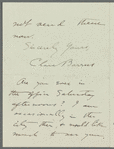 not send them
now.
Sincerely Yours,
Clara Barrus
Are you ever in
the office Saturday
afternoons? I am
occasionally in the
city then & would like
much to see you.